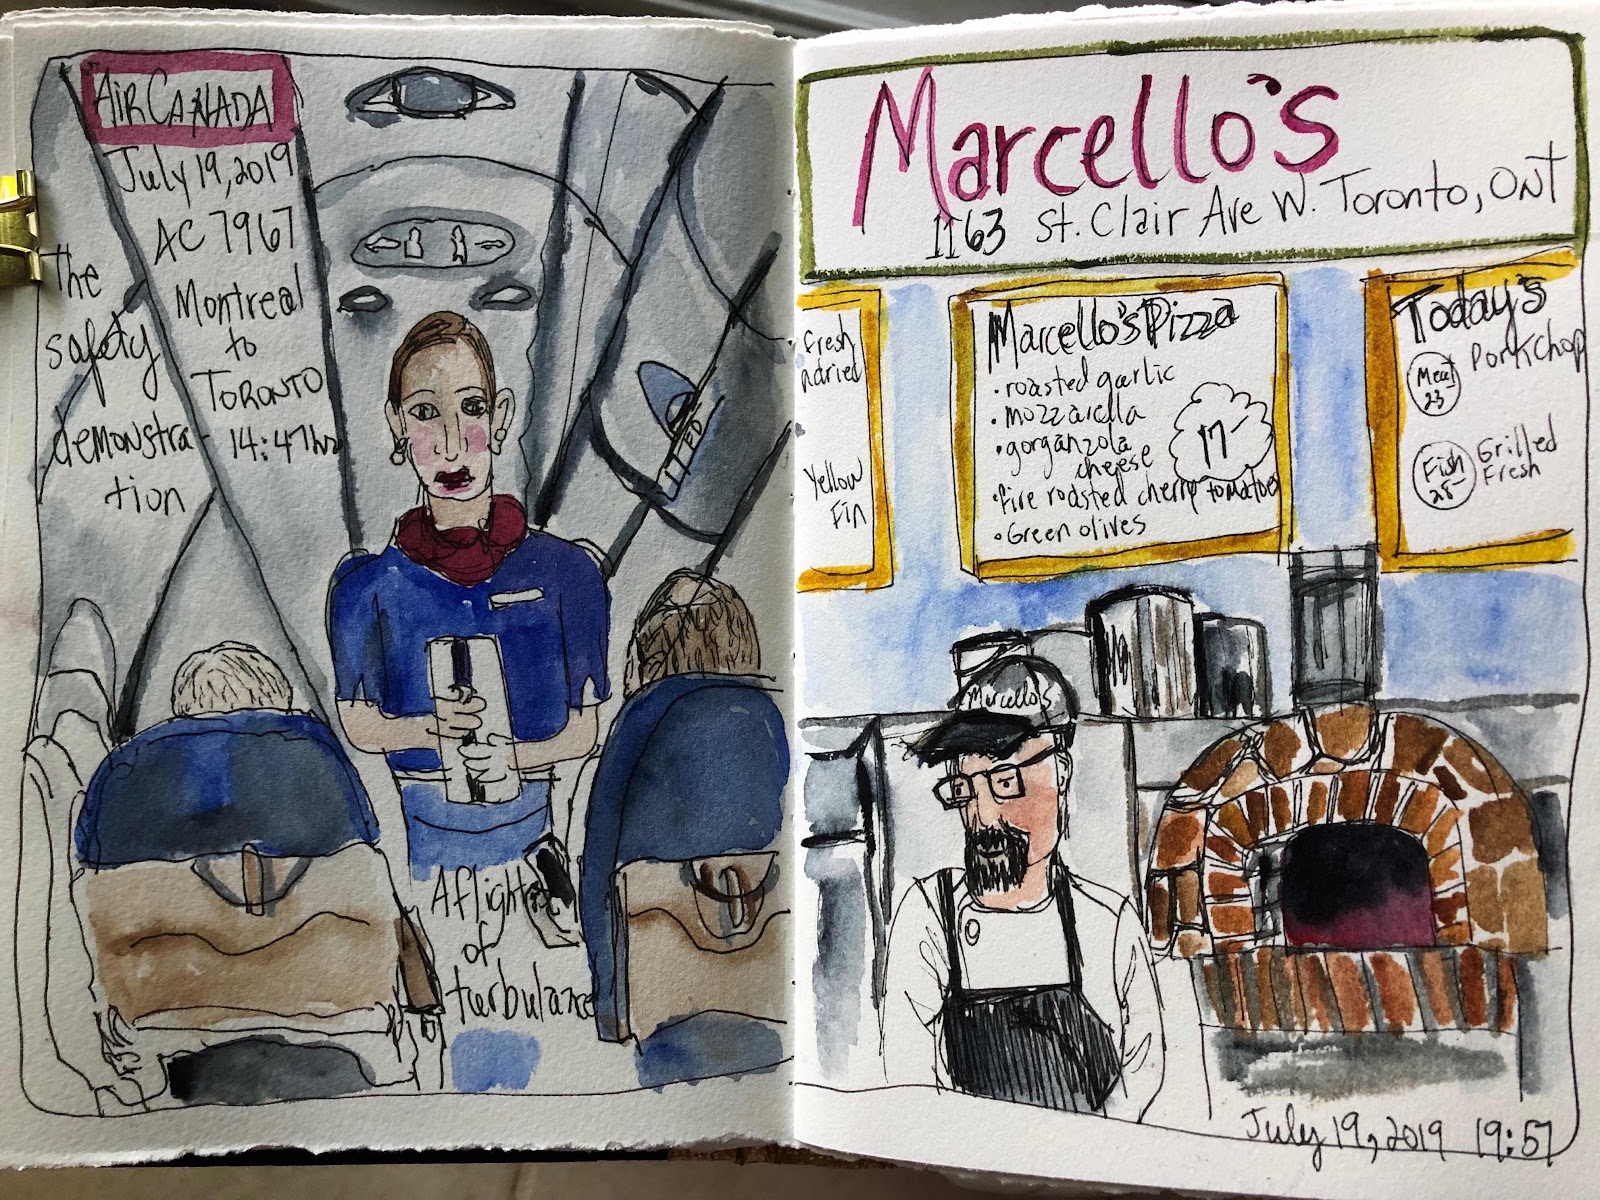 AIR CANADA
July 19, 2019
AC 7967
Montreal
to
TORONTO
14:47hr
the
safety
demonstra-
tion
EXITED
A flight
of
turbulance
Marcello's
1163 St. Clair Ave W. Toronto, ONT
fresh
ndried
Yellow
Fin
Marcello's Pizza
• roasted garlic
• mozzarella
• gorganzola
cheese
• fire roasted cherry tomatoes
• Green olives
17-
Today's
Meat
23-
PorkChop
Fish
28-
Grilled
Fresh
Marcello's
July 19, 2019 19:57